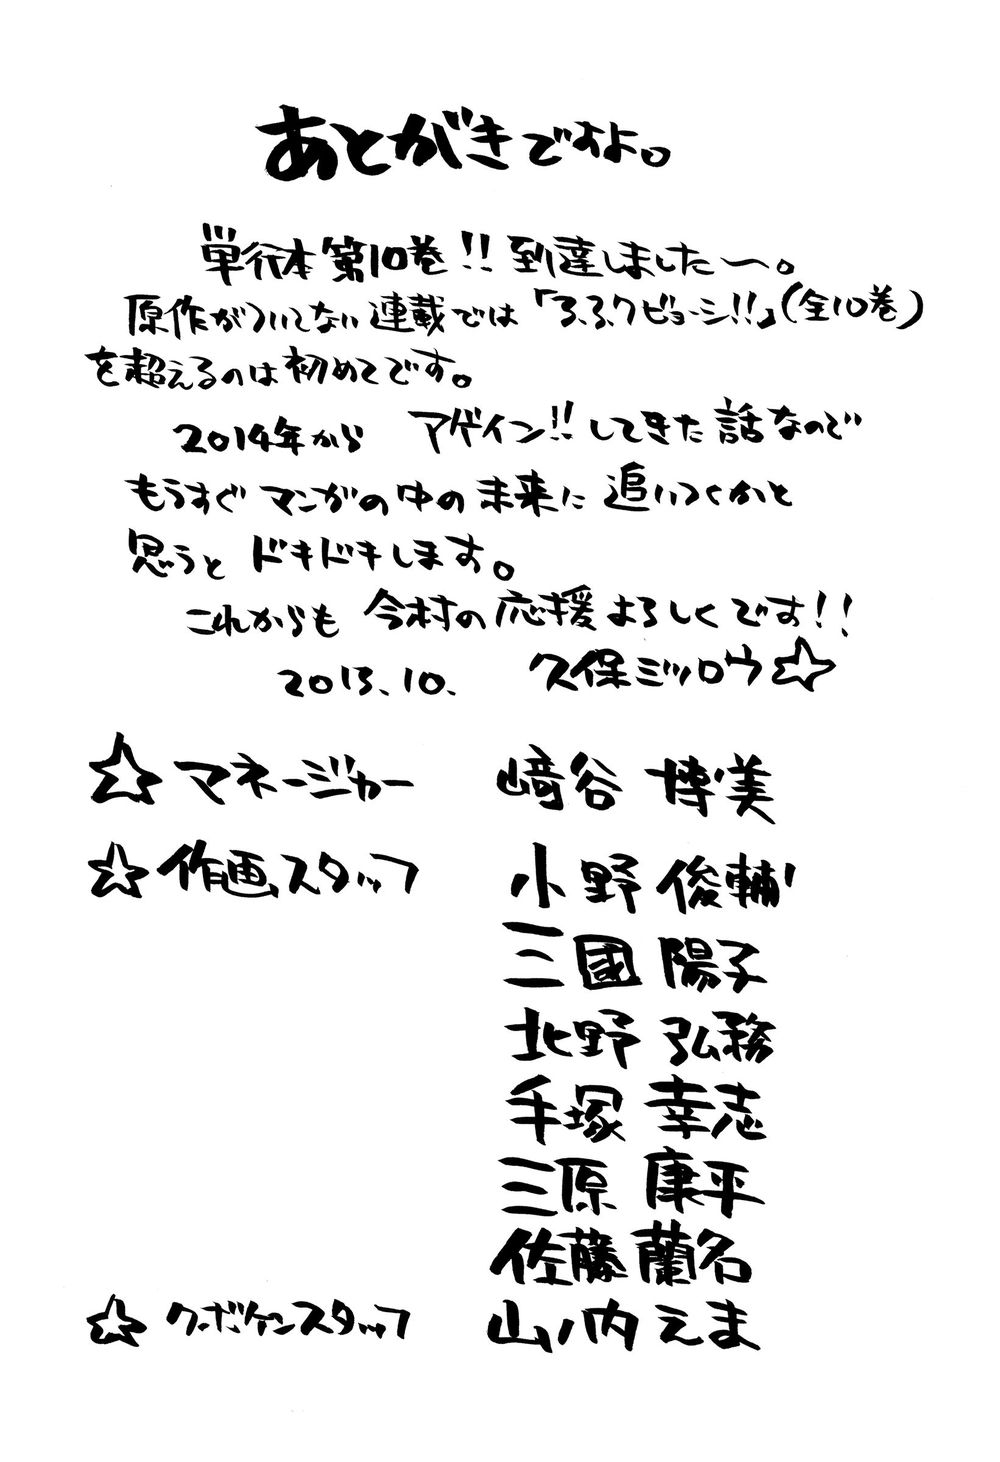 あとがきですよ。
単行本第10巻!!到達しました〜。
原作がついてない連載では「3.3.7ビョーシ!!」(全10巻)
を超えるのは初めてです。
2014年から アゲイン!!してきた話なので
もうすぐマンガの中の未来に追いつくかと
思うとドキドキします。
これからも今村の応援よろしくです!!
2013.10. 久保ミツロウ☆
☆マネージャー 﨑谷 博美
☆作画スタッフ 小野 俊輔
三國 陽子
北野 弘務
手塚 幸志
三原 康平
佐藤 蘭名
☆クボケンスタッフ 山ノ内えま